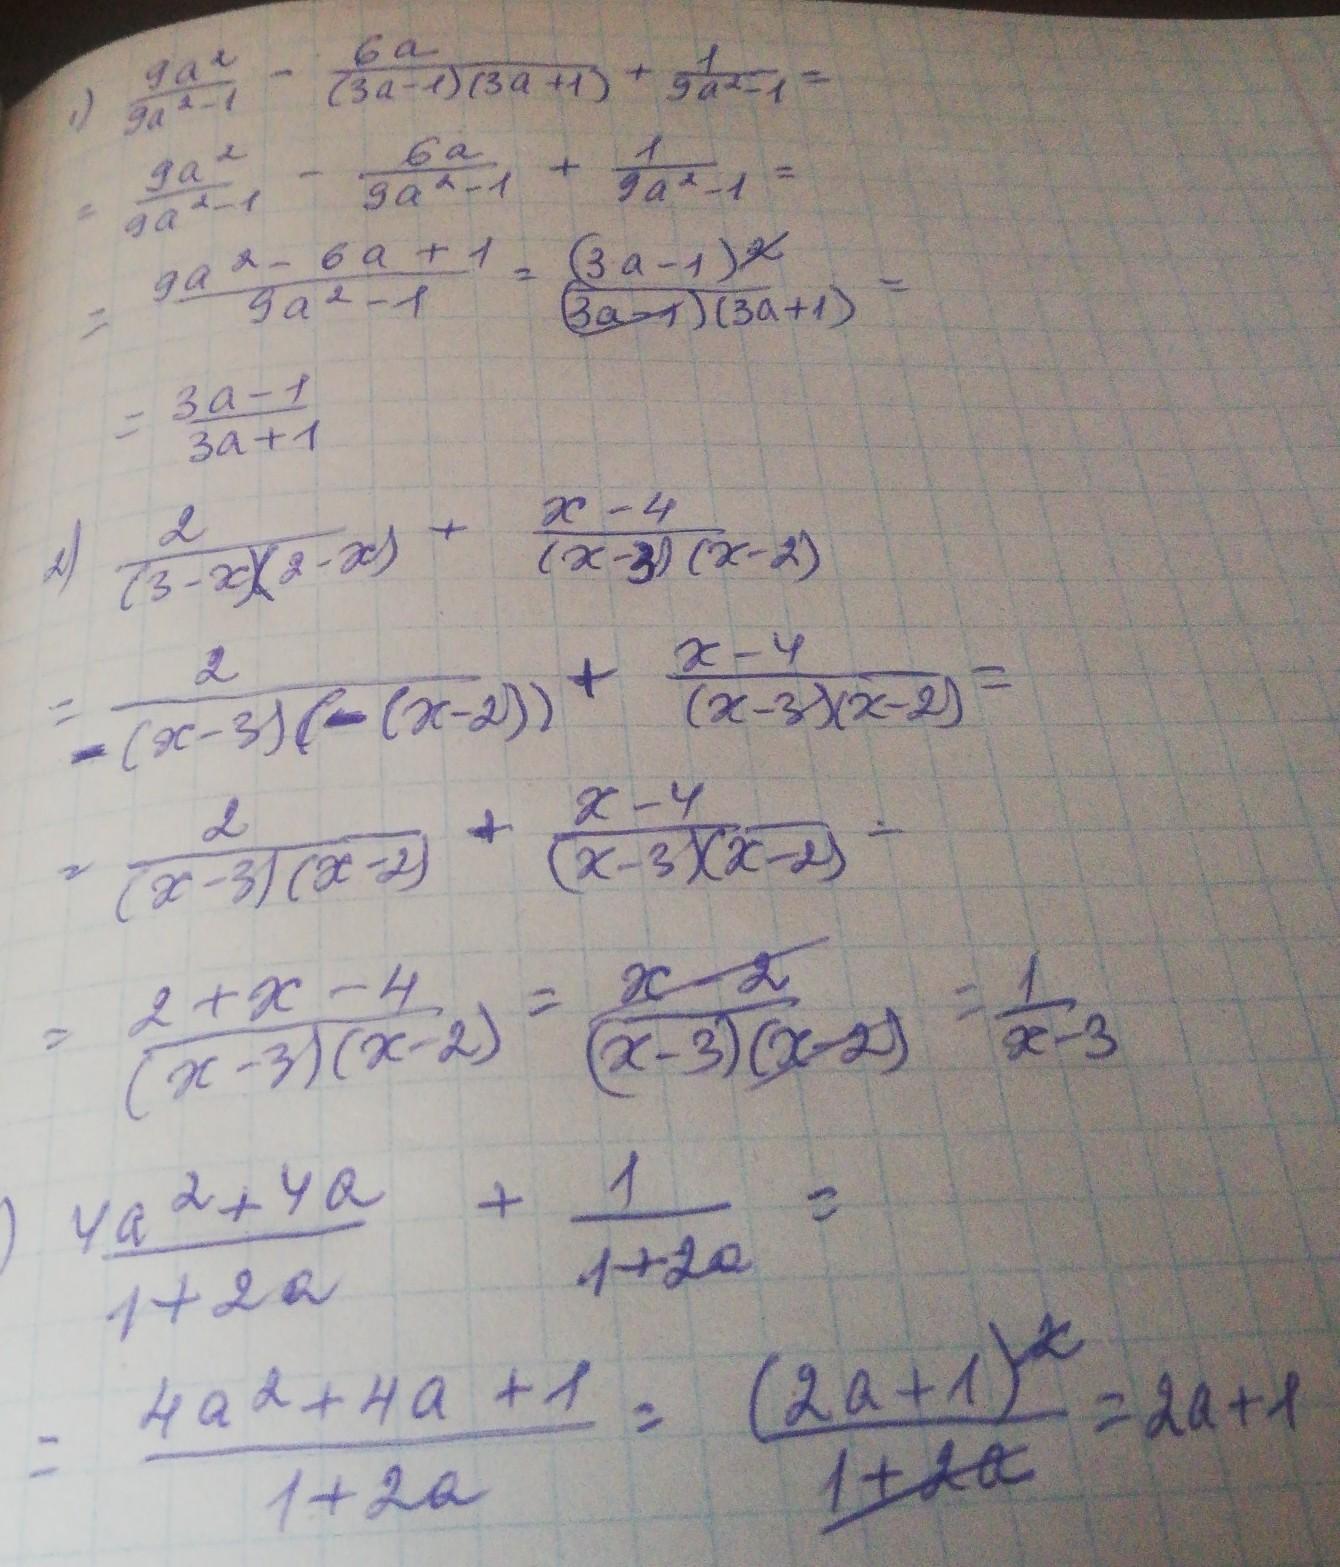 1) 9a²/(9a²-1) - 6a/((3a-1)(3a+1)) + 1/(9a²-1) =
= 9a²/(9a²-1) - 6a/(9a²-1) + 1/(9a²-1) =
= (9a²-6a+1)/(9a²-1) = (3a-1)²/((3a-1)(3a+1)) =
= (3a-1)/(3a+1)
2) 2/((3-x)(2-x)) + (x-4)/((x-3)(x-2))
= 2/(-(x-3)(-(x-2))) + (x-4)/((x-3)(x-2)) =
= 2/((x-3)(x-2)) + (x-4)/((x-3)(x-2)) =
= (2+x-4)/((x-3)(x-2)) = (x-2)/((x-3)(x-2)) = 1/(x-3)
) (4a²+4a)/(1+2a) + 1/(1+2a) =
= (4a²+4a+1)/(1+2a) = (2a+1)²/(1+2a) = 2a+1